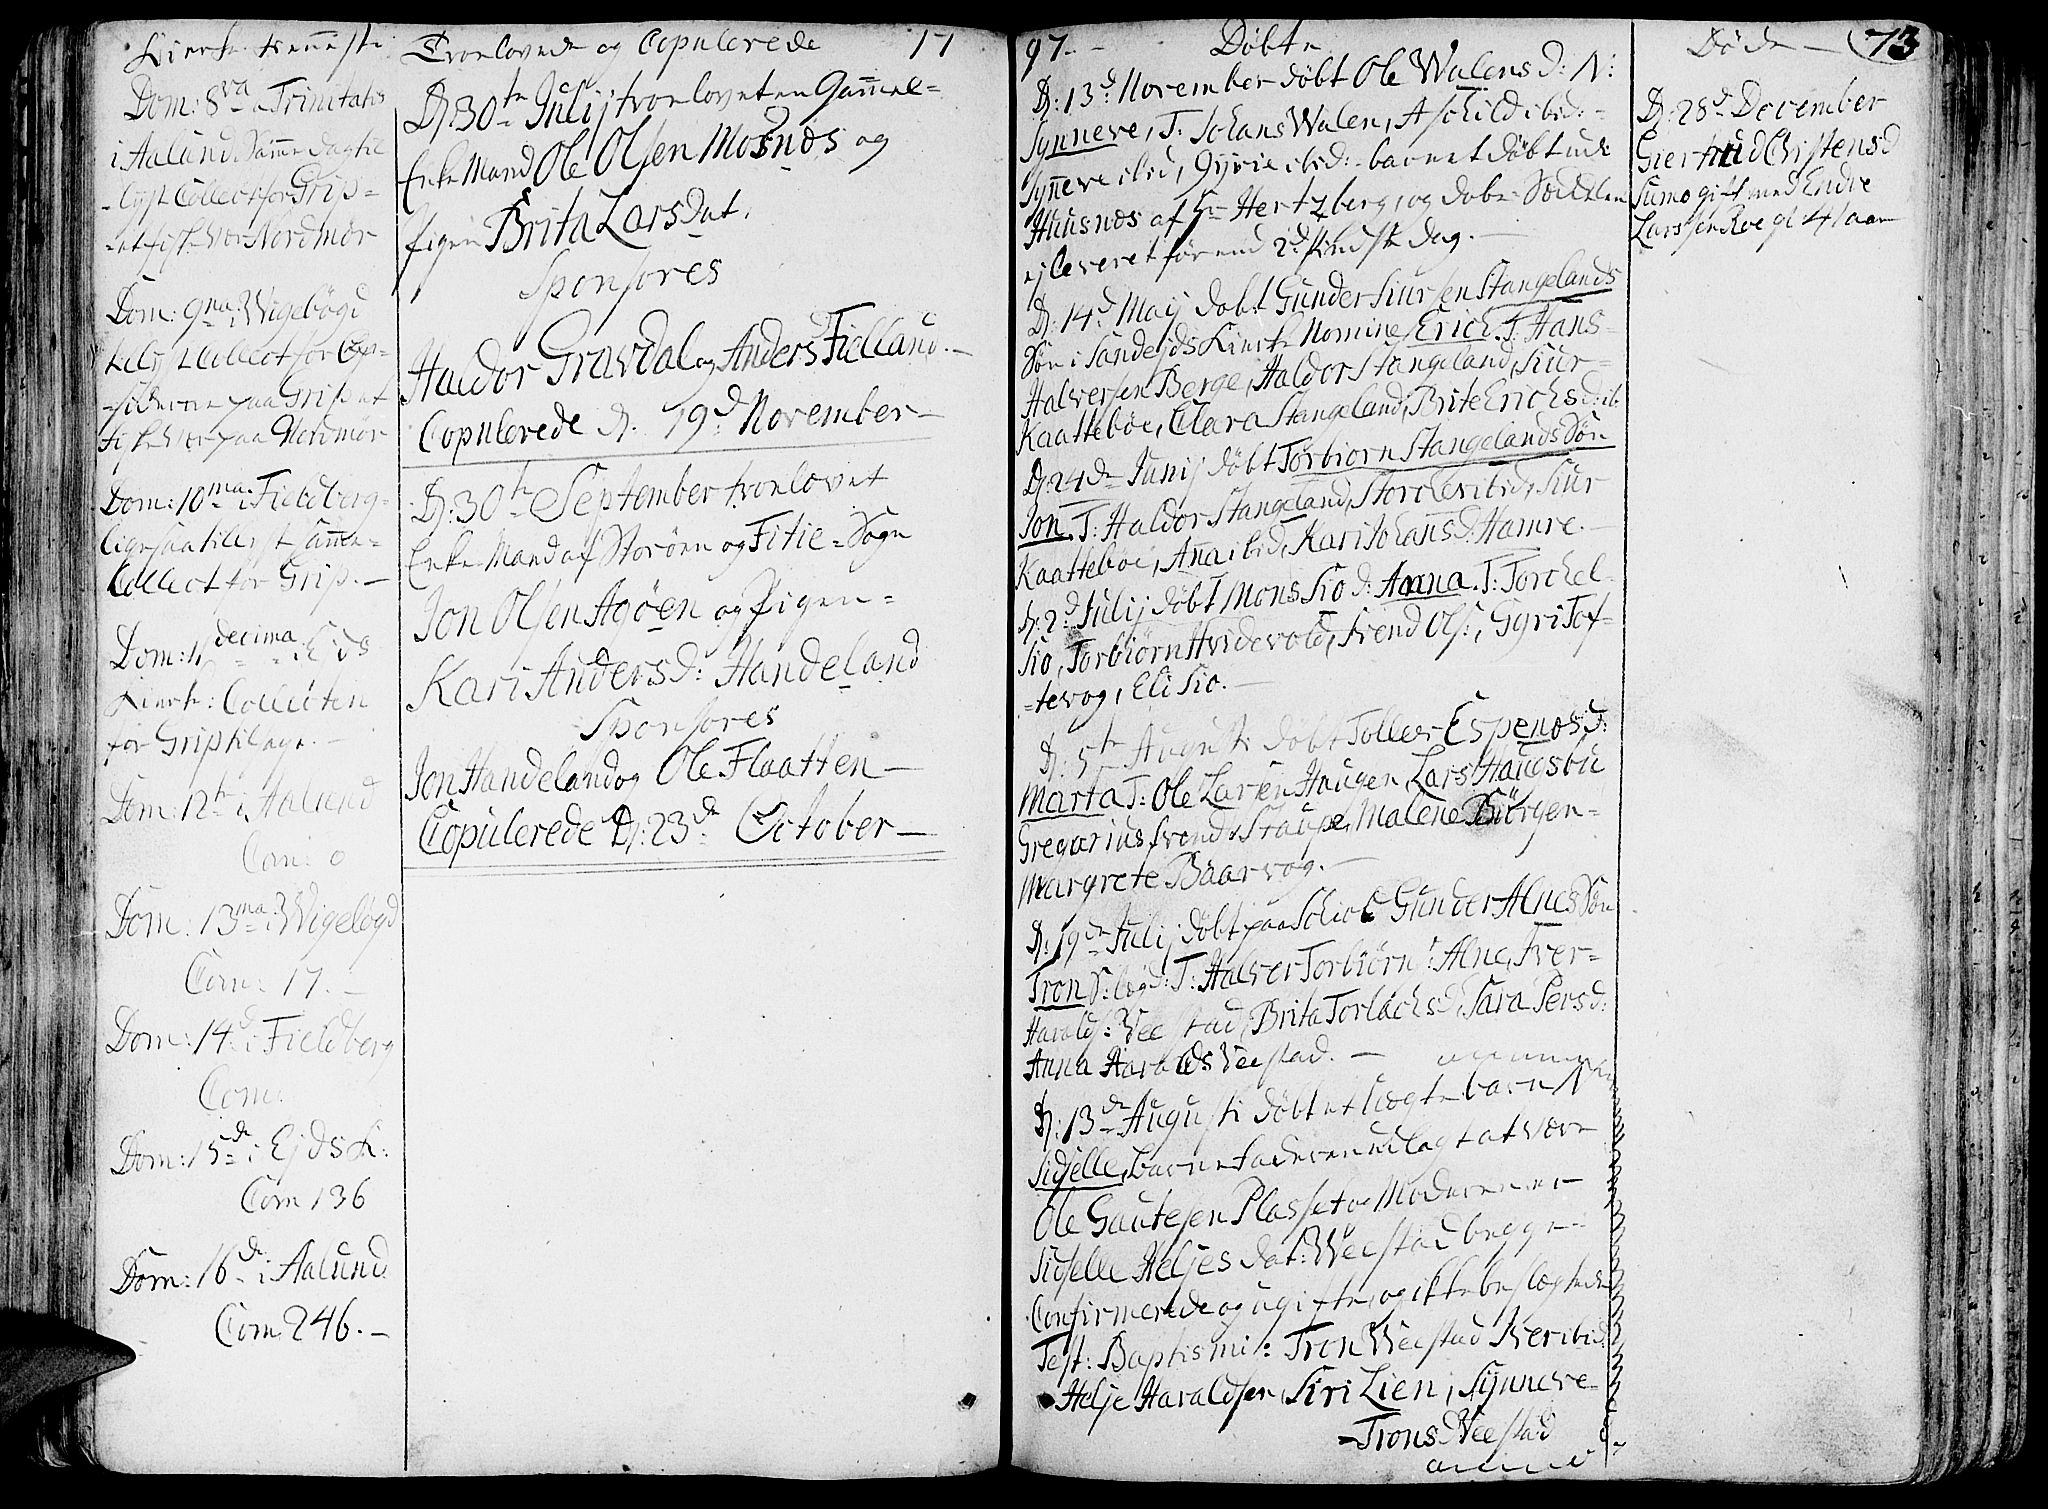 Kierke tienneste
Dom: 8va Trinitatis
i Aalund Samme dag til-
-lyst Collect for Grip-
-et fiskevær Nordmør
Dom: 9na i Wigebøgd
til lyst Collect for
paa Grip et
fiskevær paa Nordmør
Dom: 10ma i Fieldberg
ligesaa tillyst samme
Collect for Grip. -
Dom: 11 decima i Ejds
Kierke: Collecten
for Grip tilagt. -
Dom: 12te i Aalund
Com: 0
Dom: 13ma i Wigebøgd
Com: 17. -
Dom: 14d i Fieldberg
Com:
Dom: 15de i Ejds K:
Com 136
Dom: 16de i Aalund
Com 246. -
Troelovede og Copulerede 17
D: 30te Julij troelovet en Gammel-
Enke Mand Ole Olsen Mosnæs og
Pigen Brita Larsdat.
Sponsores
Haldor Gravdal og Anders Fielland. -
Copulerede d. 19d November -
D: 30te September troelovet
Enke Mand af Storøen og Fitie-Sogn
Jon Olsen Agøen og Pigen-
Kari Andersd: Handeland
Sponsores
Jon Handeland og Ole Flaatten -
Copulerede D: 23de October -
97. - Døbte
D: 13d November døbt Ole Walens d: N:
Synneve, T: Johans Walen, Aschild ibid: -
Synneve ibid, Gyrie ibid: - barnet døbt ude
Huusnæs af Hr Hertzberg, og Døbe Sedelen
ej leveret før end 2d Pindse dag. -
D: 14d Maij døbt Gunder Siursen Stangelands
Søn i Sandejds Kierke Nomine Erich. T: Hans-
Halversen Berge, Haldor Stangeland, Siur-
Kaattebøe, Clara Stangeland, Brite Erichsd: ib
D: 24de Junij døbt Torbiorn Stangelands Søn
Jon. T: Haldor Stangeland, Storcher ibid, Siur
Kaattebøe, Anna ibid, Kari Johansd: Hamre. -
D: 2d Julij døbt Mons Sio d: Anna. T: Torchel
Sio, Torbiørn Hvidevold, Svend Ols:, Gyri Tof-
-tevog, Eli Sio. -
D: 5te Augusti døbt Tolleer Espenæs d:
Marta T: Ole Larsen Haugen, Lars Haugsbu
Gregarius Svends: Staupe, Malene Biørgen-
Margrete Baarvog. -
D: 19de Julij døbt paa Schiold Gunder Alnes Søn
Tron T: Halver Torbiørns: Alne, Iver-
Haralds: Veestad, Brita Torlachsd, Sara Persd:
Anna Haralds Veestad. -
D: 13de Augusti døbt et Uægte barn N
Sidselle, barne faderen udlagt at være
Ole Gautesen Plasset og Moderen er
Sidselle Heljes dat: Weestad begge
Confirmerede og ugifte, og ikke beslægtede
Test: Baptismi: Tron Weestad Iver ibid
Helje Haraldsen, Siri Lien, Synneve-
-Trons d Weestad
Døde - 73
D: 28d December
Giertrud Christensd
Sumo gift med Endre
Larssen Roe gl 41 aar